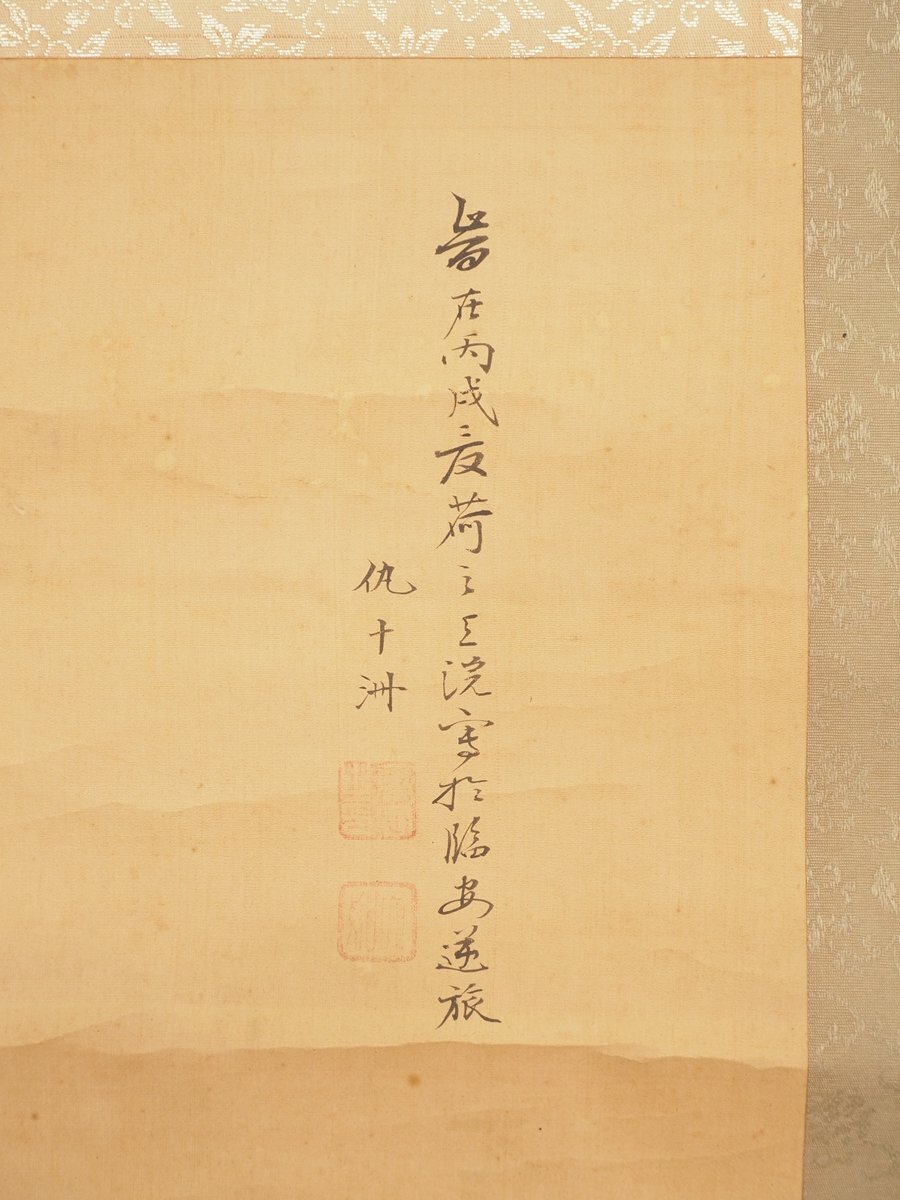 旹在丙戌夏荷之浣寫於臨安逆旅
仇十洲